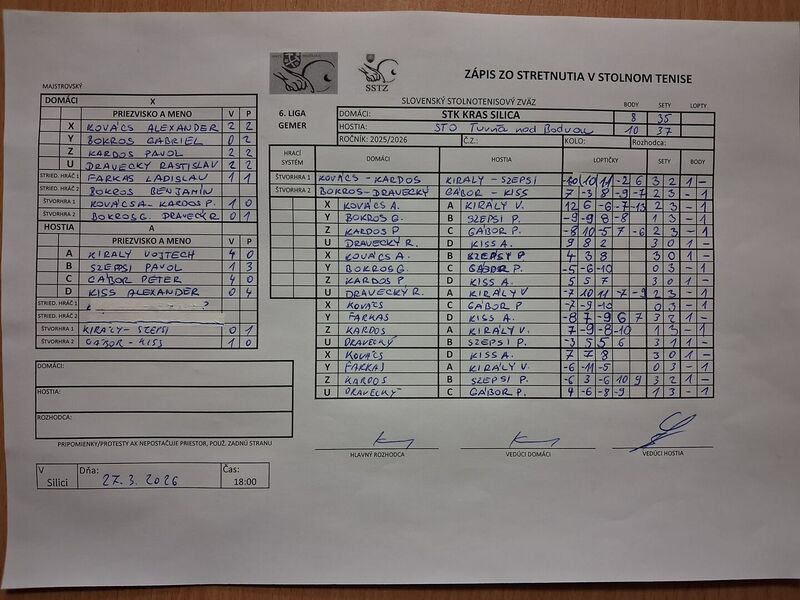 ZÁPIS ZO STRETNUTIA V STOLNOM TENISE
SSTZ
SLOVENSKÝ STOLNOTENISOVÝ ZVÄZ
BODY SETY LOPTY
6. LIGA
GEMER
DOMÁCI: STK KRAS SILICA 8 35
HOSTIA: STO Turňa nad Bodvou 10 37
ROČNÍK: 2025/2026 Č.Z.: KOLO: Rozhodca:
MAJSTROVSKÝ
DOMÁCI X
PRIEZVISKO A MENO V P
X KOVÁCS ALEXANDER 2 2
Y BOKROS GABRIEL 0 2
Z KARDOS PAVOL 2 2
U DRAVECKÝ RASTISLAV 2 2
STRIED. HRÁČ 1 FARKAS LADISLAV 1 1
STRIED. HRÁČ 2 BOKROS BENJAMÍN
ŠTVORHRA 1 KOVÁCS A.- KARDOS P. 1 0
ŠTVORHRA 2 BOKROS G. DRAVECKÝ R 0 1
HOSTIA A
PRIEZVISKO A MENO V P
A KIRALY VOJTECH 4 0
B SZEPSI PAVOL 1 3
C GÁBOR PETER 4 0
D KISS ALEXANDER 0 4
STRIED. HRÁČ 1
STRIED. HRÁČ 2
ŠTVORHRA 1 KIRALY- SZEPSI 0 1
ŠTVORHRA 2 GÁBOR - KISS 1 0
HRACÍ SYSTÉM DOMÁCI HOSTIA LOPTIČKY SETY BODY
ŠTVORHRA 1 KOVÁCS - KARDOS KIRALY - SZEPSI -10 10 11 -2 6 3 2 1 -
ŠTVORHRA 2 BOKROS-DRAVECKÝ GÁBOR - KISS 7 -3 8 -9 -7 2 3 - 1
X KOVÁCS A. A KIRALY V. 12 6 -6 -7 -13 2 3 - 1
Y BOKROS G. B SZEPSI P. -9 -9 8 -8 1 3 - 1
Z KARDOS P C GÁBOR P. -8 10 -5 7 -6 2 3 - 1
U DRAVECKÝ R. D KISS A. 9 8 2 3 0 1 -
X KOVÁCS A. B SZEPSY P 4 3 8 3 0 1 -
Y BOKROS G. C GÁBOR P. -5 -6 -10 0 3 - 1
Z KARDOS P D KISS A. 5 5 7 3 0 1 -
U DRAVECKÝ R. A KIRÁLY V -7 10 11 -7 -9 2 3 - 1
X KOVÁCS C GÁBOR P -7 -9 -10 0 3 - 1
Y FARKAS D KISS A. -8 7 -9 6 7 3 2 1 -
Z KARDOS A KIRALY V. 7 -9 -8 -10 1 3 - 1
U DRAVECKÝ B SZEPSI P. -3 5 5 6 3 1 1 -
X KOVÁCS D KISS A. 7 7 8 3 0 1 -
Y FARKAS A KIRALY V. -6 -11 -5 0 3 - 1
Z KARDOS B SZEPSI P. -6 3 -6 10 9 3 2 1 -
U DRAVECKÝ C GÁBOR P. 4 -6 -8 -9 1 3 - 1
DOMÁCI:
HOSTIA:
ROZHODCA:
PRIPOMIENKY/PROTESTY AK NEPOSTAČUJE PRIESTOR, POUŽ. ZADNÚ STRANU
HLAVNÝ ROZHODCA VEDÚCI DOMÁCI VEDÚCI HOSTIA
V Dňa: Čas:
Silici 27. 3. 2026 18:00